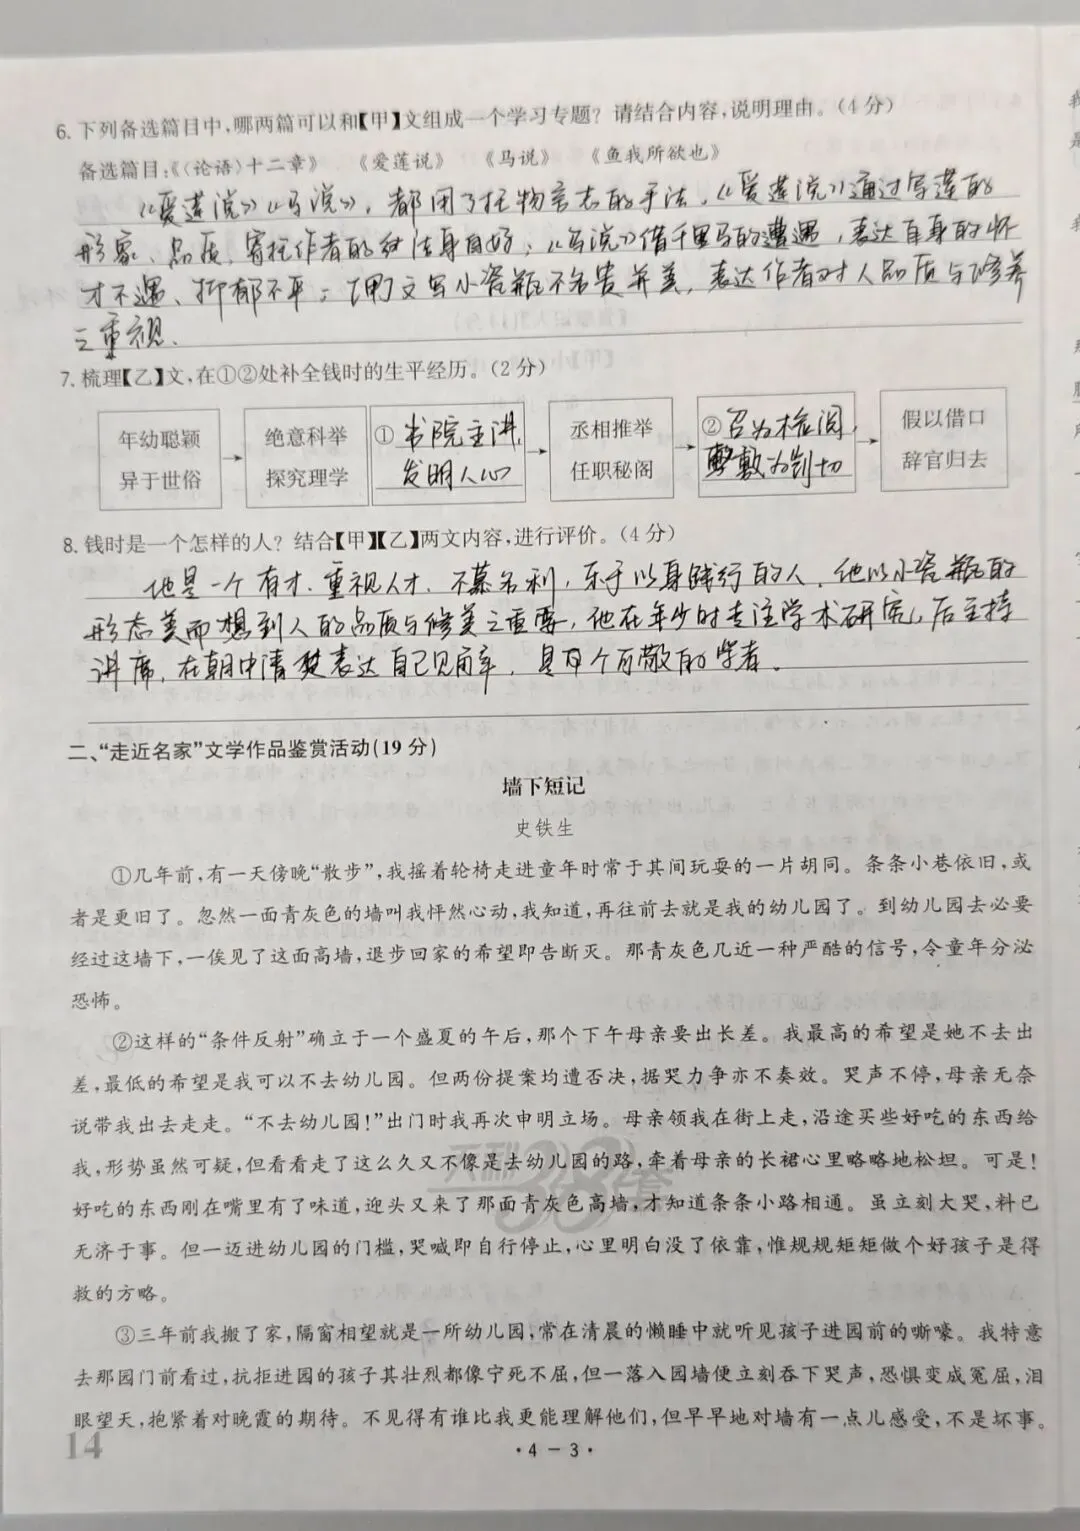 6. 下列备选篇目中,哪两篇可以和【甲】文组成一个学习专题?请结合内容,说明理由。(4分)
备选篇目:《〈论语〉十二章》 《爱莲说》 《马说》 《鱼我所欲也》
《爱莲说》《马说》,都用了托物言志的手法,《爱莲说》通过写莲的
形象、品质,寄托作者的洁身自好;《马说》借千里马的遭遇,表达自身的怀
才不遇、抑郁不平;【甲】文写小瓷瓶不名贵并美,表达作者对人品质与修养
之重视.
7. 梳理【乙】文,在①②处补全钱时的生平经历。(2分)
年幼聪颖
异于世俗
绝意科举
探究理学
①书院主讲,
发明人心
丞相推举
任职秘阁
②召为检阅,
敷为剀切
假以借口
辞官归去
8. 钱时是一个怎样的人?结合【甲】【乙】两文内容,进行评价。(4分)
他是一个有才、重视人才、不慕名利,乐于以身践行的人,他以小瓷瓶的
形态美而想到人的品质与修美之重要,他在年少时专注学术研究,后主持
讲席,在朝中清楚表达自己见解,是可敬的学者.
二、“走近名家”文学作品鉴赏活动(19分)
墙下短记
史铁生
①几年前,有一天傍晚“散步”,我摇着轮椅走进童年时常于其间玩耍的一片胡同。条条小巷依旧,或
者是更旧了。忽然一面青灰色的墙叫我怦然心动,我知道,再往前去就是我的幼儿园了。到幼儿园去必要
经过这墙下,一俟见了这面高墙,退步回家的希望即告断灭。那青灰色几近一种严酷的信号,令童年分泌
恐怖。
②这样的“条件反射”确立于一个盛夏的午后,那个下午母亲要出长差。我最高的希望是她不去出
差,最低的希望是我可以不去幼儿园。但两份提案均遭否决,据哭力争亦不奏效。哭声不停,母亲无奈
说带我出去走走。“不去幼儿园!”出门时我再次申明立场。母亲领我在街上走,沿途买些好吃的东西给
我,形势虽然可疑,但看看走了这么久又不像是去幼儿园的路,牵着母亲的长裙心里略略地松坦。可是!
好吃的东西刚在嘴里有了味道,迎头又来了那面青灰色高墙,才知道条条小路相通。虽立刻大哭,料已
无济于事。但一迈进幼儿园的门槛,哭喊即自行停止,心里明白没了依靠,惟规规矩矩做个好孩子是得
救的方略。
③三年前我搬了家,隔窗相望就是一所幼儿园,常在清晨的懒睡中就听见孩子进园前的嘶嚎。我特意
去那园门前看过,抗拒进园的孩子其壮烈都像宁死不屈,但一落入园墙便立刻吞下哭声,恐惧变成冤屈,泪
眼望天,抱紧着对晚霞的期待。不见得有谁比我更能理解他们,但早早地对墙有一点儿感受,不是坏事。
14
·4-3·
天利38套